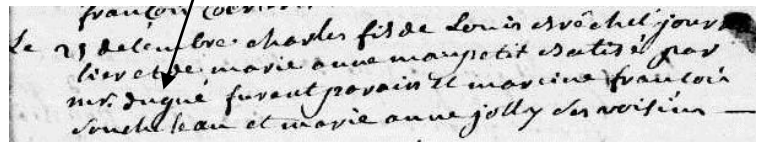 françois
Le 25 decembre charles fils de Louis jour
lier et de marie anne maupetit batisé par
mr. dugué furent parain et maraine françois
et marie anne jolly ses voisins